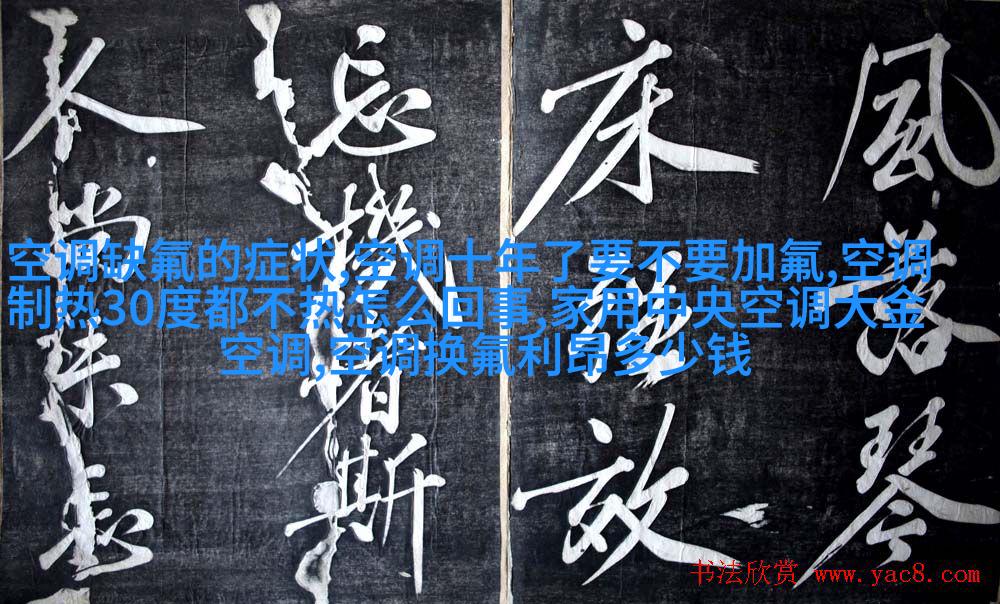 空调缺氟的症状,空调十年了要不要加氟,空调
制热30度都不热怎么回事,家用中央空调大金
空调,空调换氟利昂多少钱
風落琴
床故
忘機者斯
书法欣赏 www.yac8.com